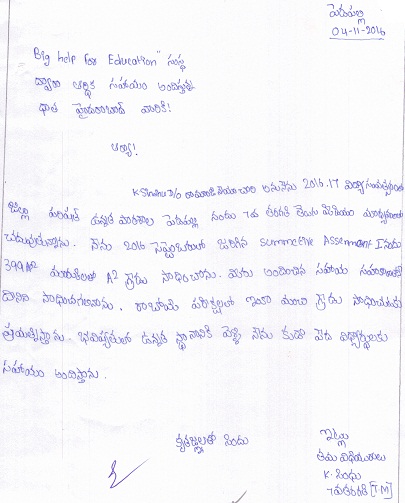 పెదపల్లి
04-11-2016
Big help for Education" సంస్థ
ద్వారా ఆర్థిక సహాయం అందిస్తున్న
ధాత హైదరాబాద్ వారికి!
ఆర్యా!
K Sindhu D/o రామాంజనేయాచారి అను నేను 2016.17 విద్యా సంవత్సరంలో
జిల్లా పరిషత్ ఉన్నత పాఠశాల పెదపల్లి నందు 7వ తరగతి తెలుగు మీడియం మాధ్యమంలో
చదువుతున్నాను. నేను 2016 సెప్టెంబరులో జరిగిన Summetive Assesment I నందు
399 మార్కులతో A2 గ్రేడు సాధించాను. మీరు అందించిన సహాయ సహకారాలతో
దీనిని సాధించగలిగాను. రాబోయే పరీక్షల్లో ఇంకా మంచి గ్రేడు సాధించుటకు
ప్రయత్నిస్తాను. భవిష్యత్తులో ఉన్నత స్థానానికి వెళ్ళి నేను కూడా పేద విద్యార్థులకు
సహాయం అందిస్తాను.
కృతజ్ఞతలతో సింధు
ఇట్లు
తమ విధేయురాలు
K. సింధు
7వ తరగతి [T.M]